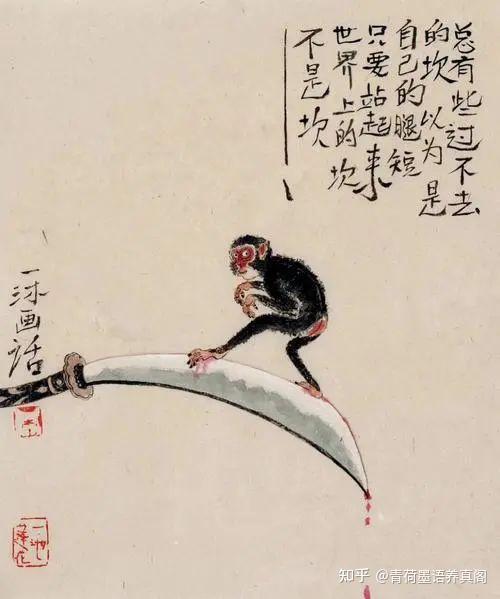 总有些过不去
的坎 以为是
自己的腿短
只要站起来
世界上的坎
不是坎
一沐画话
知乎 @青荷墨语养真阁